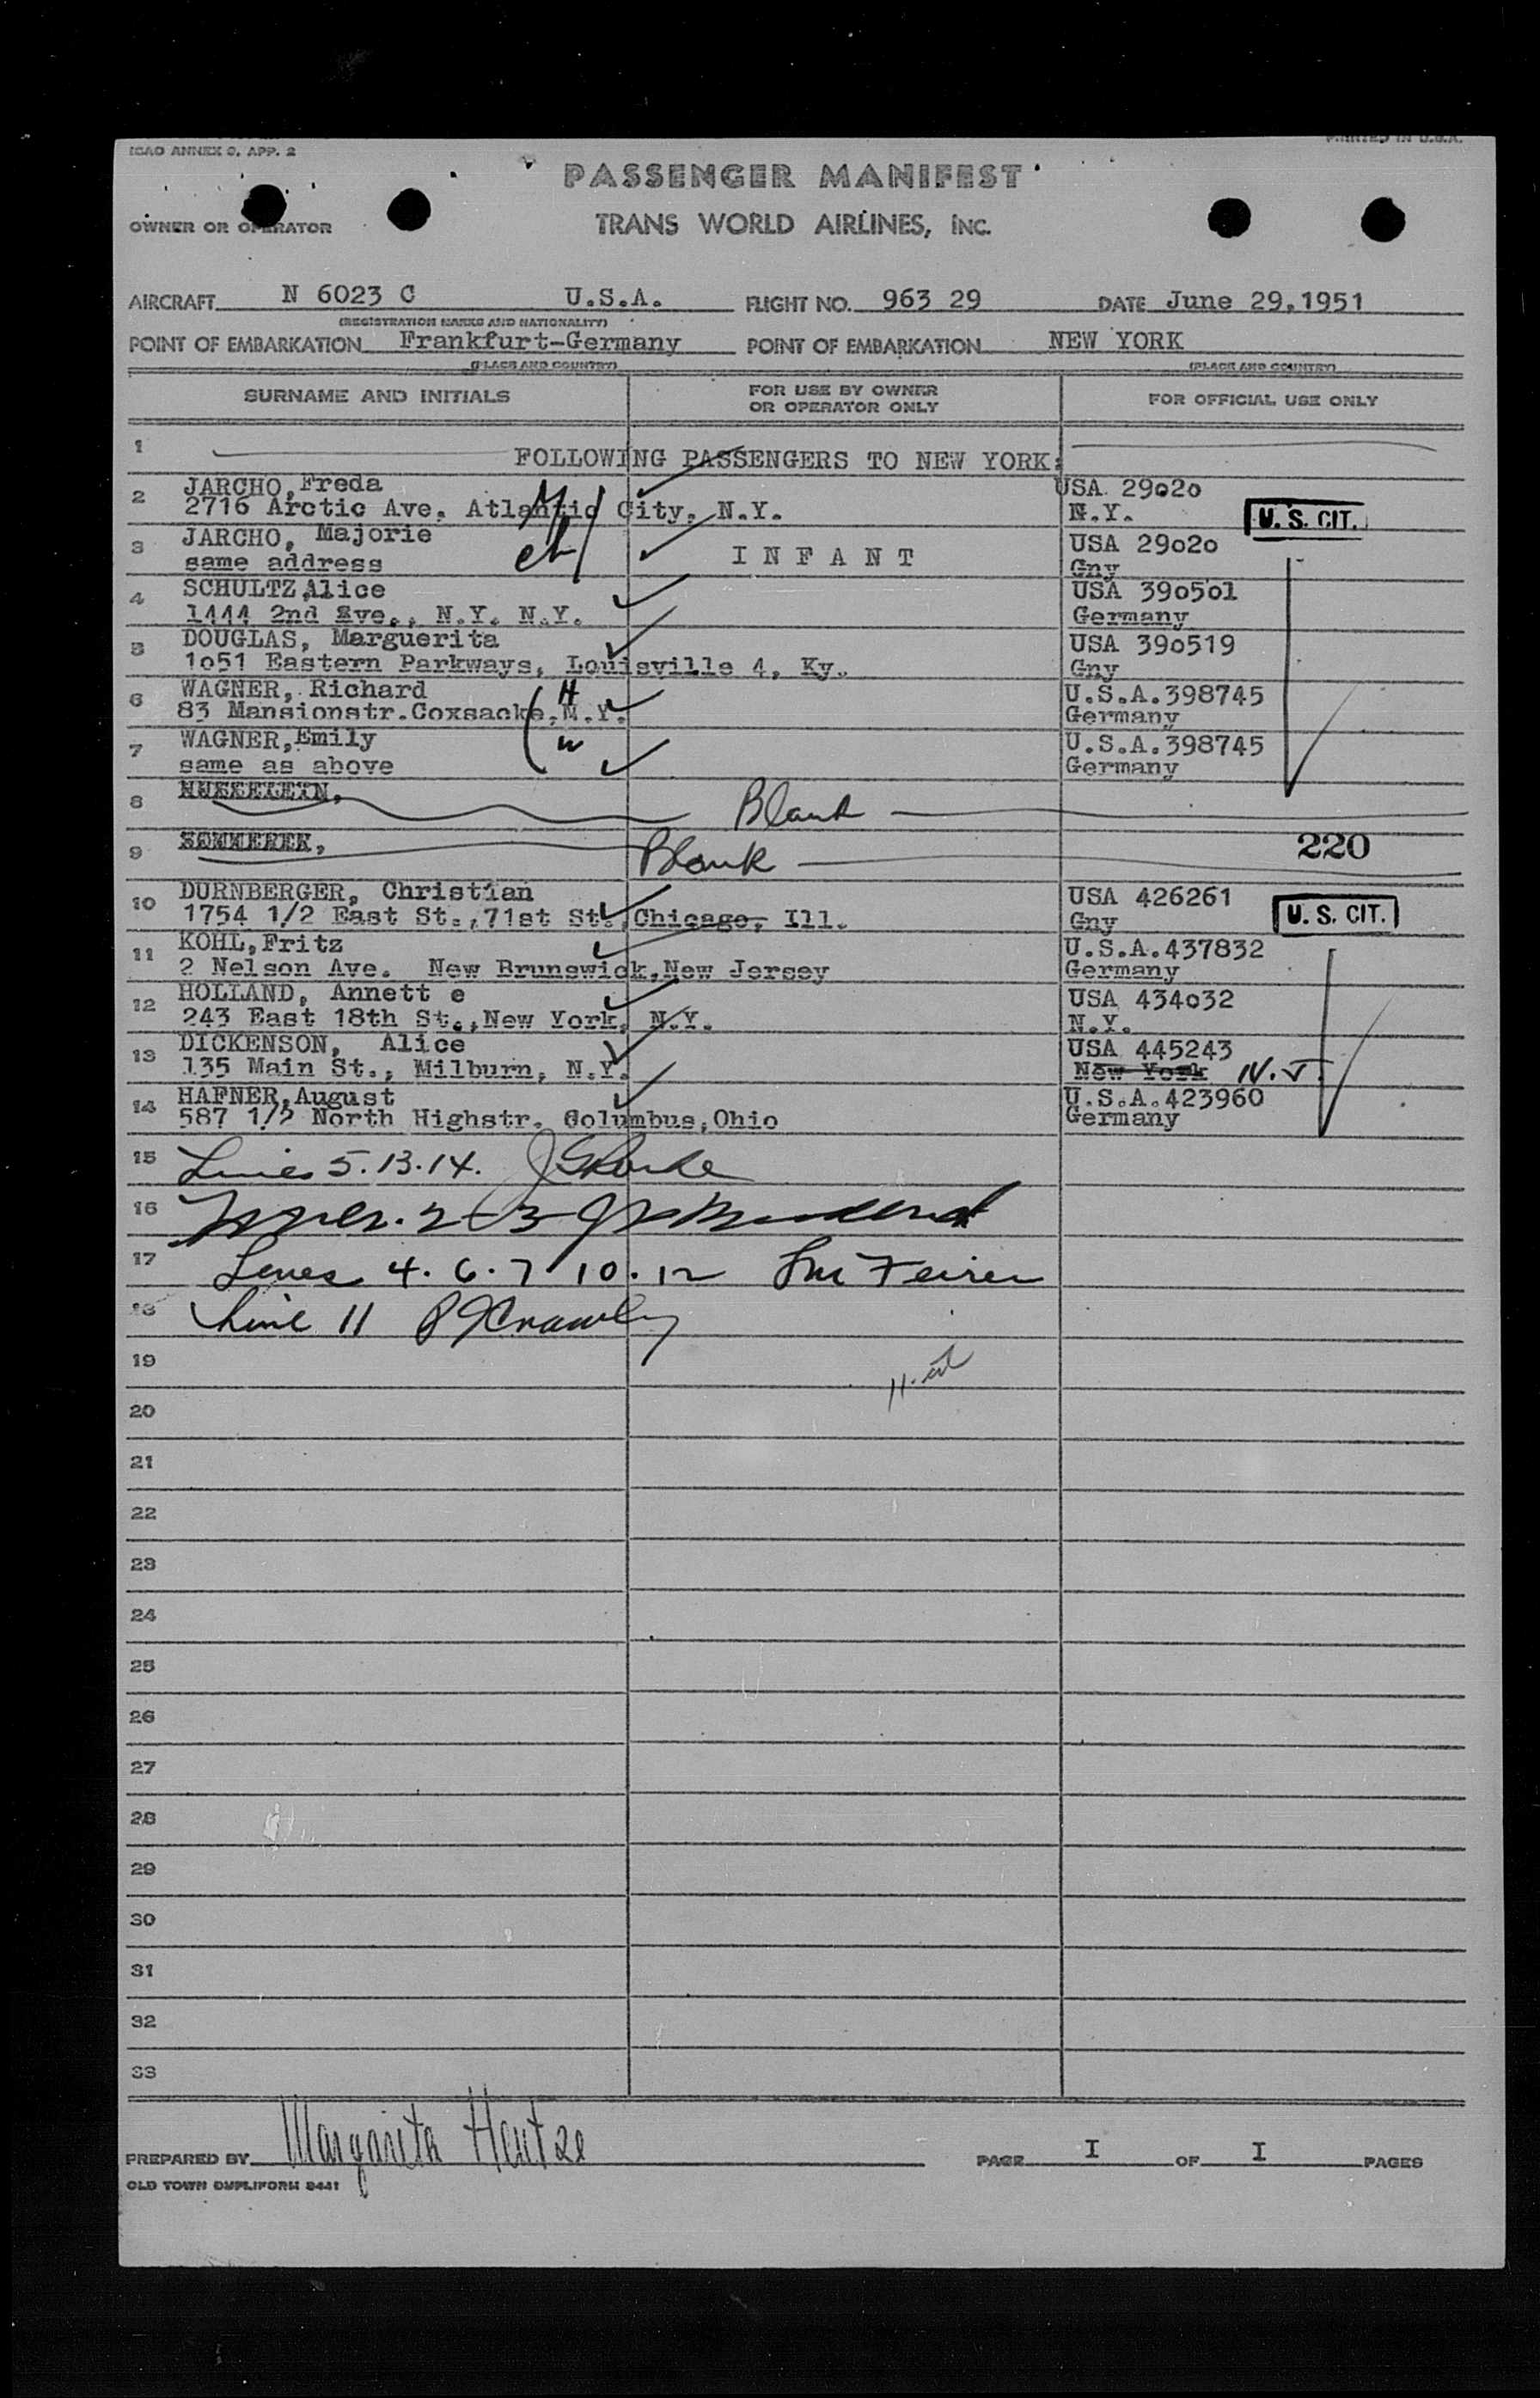 ICAO ANNEX 9, APP. 2
PRINTED IN U.S.A.
PASSENGER MANIFEST
OWNER OR OPERATOR TRANS WORLD AIRLINES, INC.
AIRCRAFT N 6023 C U.S.A. FLIGHT NO. 963 29 DATE June 29,1951
(REGISTRATION MARKS AND NATIONALITY)
POINT OF EMBARKATION Frankfurt-Germany POINT OF EMBARKATION NEW YORK
(PLACE AND COUNTRY) (PLACE AND COUNTRY)
SURNAME AND INITIALS FOR USE BY OWNER OR OPERATOR ONLY FOR OFFICIAL USE ONLY
1 FOLLOWING PASSENGERS TO NEW YORK:
2 JARCHO,Freda USA 29020
2716 Arctic Ave. Atlantic City, N.Y. N.Y. U. S. CIT.
3 JARCHO, Majorie I N F A N T USA 29020
same address ch Gny
4 SCHULTZ,Alice USA 390501
1444 2nd Ave., N.Y. N.Y. Germany
5 DOUGLAS, Marguerita USA 390519
1051 Eastern Parkways, Louisville 4, Ky. Gny
6 WAGNER, Richard H U.S.A.398745
83 Mansionstr.Coxsacke,N.Y. Germany
7 WAGNER,Emily w U.S.A.398745
same as above Germany
8 Blank
9 Blank 220
10 DURNBERGER, Christian USA 426261
1754 1/2 East St.,71st St., Chicago, Ill. Gny U. S. CIT.
11 KOHL,Fritz U.S.A.437832
2 Nelson Ave. New Brunswick,New Jersey Germany
12 HOLLAND, Annett e USA 434032
243 East 18th St.,New York, N.Y. N.Y.
13 DICKENSON, Alice USA 445243
135 Main St., Milburn, N.Y. New York N.J.
14 HAFNER,August U.S.A.423960
587 1/2 North Highstr. Columbus,Ohio Germany
15 Lines 5.13.14.
16 2 3
17 Lines 4. 6. 7 10. 12
18 Line 11
19
20
21
22
23
24
25
26
27
28
29
30
31
32
33
PREPARED BY Margarita Hentze PAGE I OF I PAGES
OLD TOWN DUPLIFORM 8441